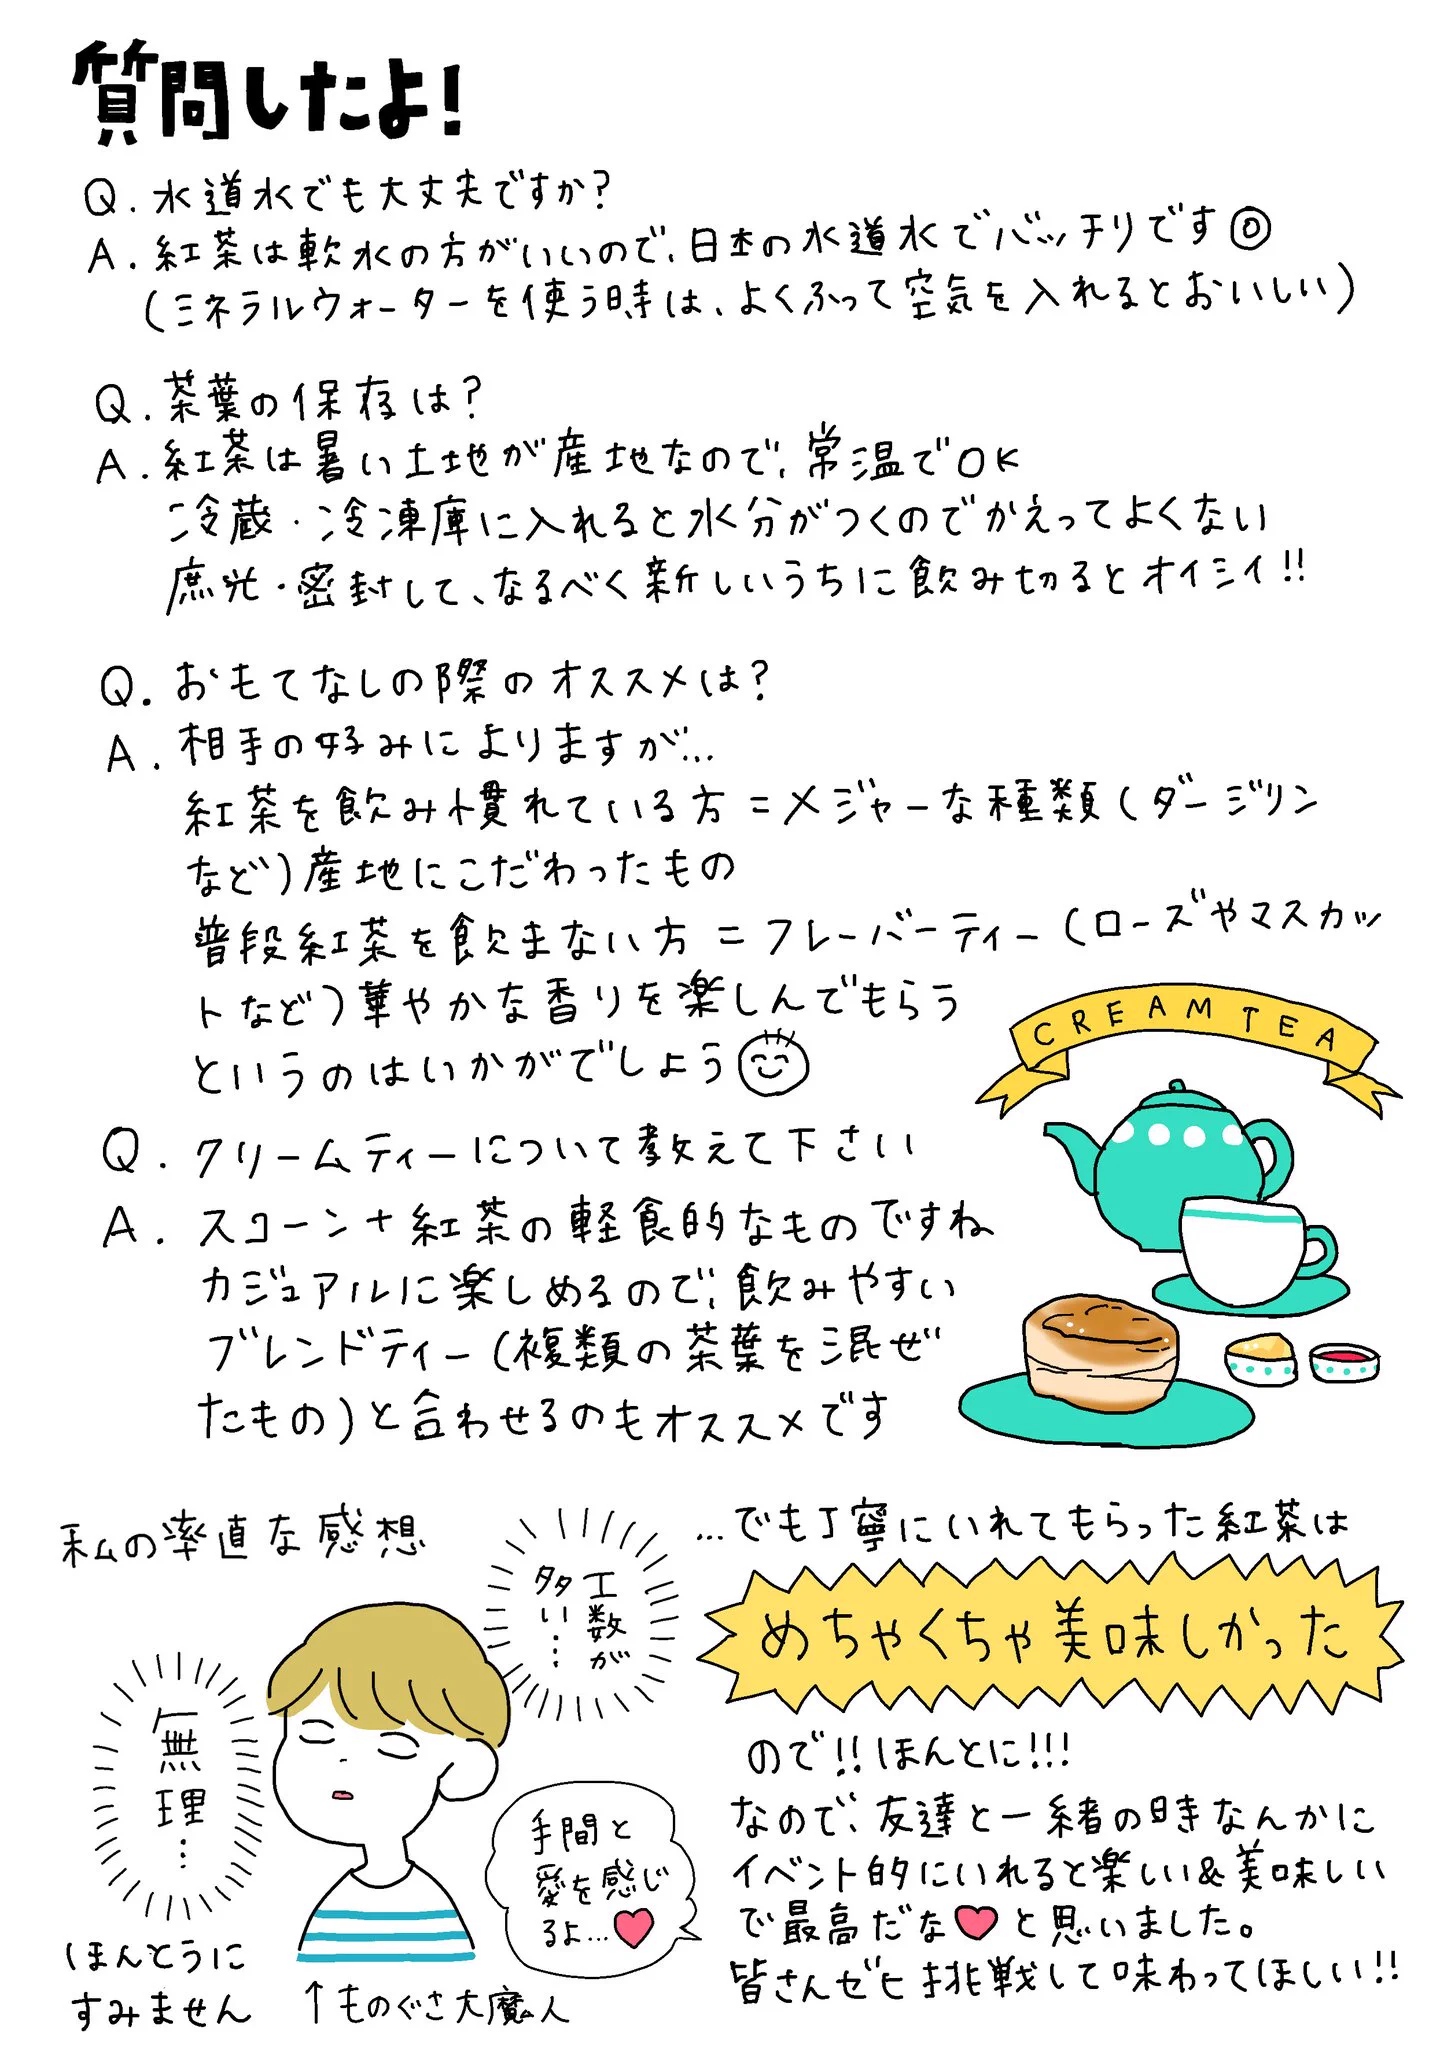 質問したよ!
Q. 水道水でも大丈夫ですか?
A. 紅茶は軟水の方がいいので、日本の水道水でバッチリです◎
(ミネラルウォーターを使う時は、よくふって空気を入れるとおいしい)
Q. 茶葉の保存は?
A. 紅茶は暑い土地が産地なので、常温でOK
冷蔵・冷凍庫に入れると水分がつくのでかえってよくない
遮光・密封して、なるべく新しいうちに飲み切るとオイシイ!!
Q. おもてなしの際のオススメは?
A. 相手の好みによりますが…
紅茶を飲み慣れている方=メジャーな種類(ダージリン
など)産地にこだわったもの
普段紅茶を飲まない方=フレーバーティー(ローズやマスカッ
トなど)華やかな香りを楽しんでもらう
というのはいかがでしょう
CREAM TEA
Q. クリームティーについて教えて下さい
A. スコーン+紅茶の軽食的なものですね
カジュアルに楽しめるので、飲みやすい
ブレンドティー(複類の茶葉を混ぜ
たもの)と合わせるのもオススメです
私の率直な感想
工数が
多い…
無理…
手間と
愛を感じ
るよ…
ほんとうに
すみません
↑ものぐさ大魔人
…でも丁寧にいれてもらった紅茶は
めちゃくちゃ美味しかった
ので!!ほんとに!!!
なので、友達と一緒の時なんかに
イベント的にいれると楽しい&美味しい
で最高だな♥と思いました。
皆さんゼヒ挑戦して味わってほしい!!